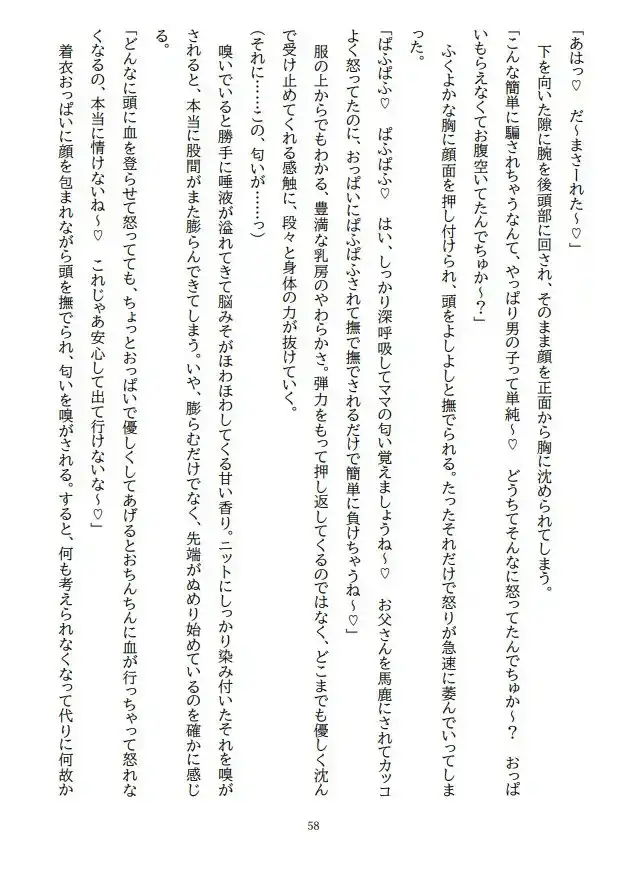 「あはっ♡　だ～まさーれた～♡」
下を向いた隙に腕を後頭部に回され、そのまま顔を正面から胸に沈められてしまう。
「こんな簡単に騙されちゃうなんて、やっぱり男の子って単純～♡　どうちてそんなに怒ってたんでちゅか～？　おっぱ
いもらえなくてお腹空いてたんでちゅか～？」
ふくよかな胸に顔面を押し付けられ、頭をよしよしと撫でられる。たったそれだけで怒りが急速に萎んでいってしま
った。
「ぱふぱふ♡　ぱふぱふ♡　はい、しっかり深呼吸してママの匂い覚えましょうね～♡　お父さんを馬鹿にされてカッコ
よく怒ってたのに、おっぱいにぱふぱふされて撫で撫でされるだけで簡単に負けちゃうね～♡」
服の上からでもわかる、豊満な乳房のやわらかさ。弾力をもって押し返してくるのではなく、どこまでも優しく沈ん
で受け止めてくれる感触に、段々と身体の力が抜けていく。
（それに……この、匂いが……っ）
嗅いでいると勝手に唾液が溢れてきて脳みそがほわほわしてくる甘い香り。ニットにしっかり染み付いたそれを嗅が
されると、本当に股間がまた膨らんできてしまう。いや、膨らむだけでなく、先端がぬめり始めているのを確かに感じ
る。
「どんなに頭に血を登らせて怒ってても、ちょっとおっぱいで優しくしてあげるとおちんちんに血が行っちゃって怒れな
くなるの、本当に情けないね～♡　これじゃあ安心して出て行けないな～♡」
着衣おっぱいに顔を包まれながら頭を撫でられ、匂いを嗅がされる。すると、何も考えられなくなって代りに何故か
58